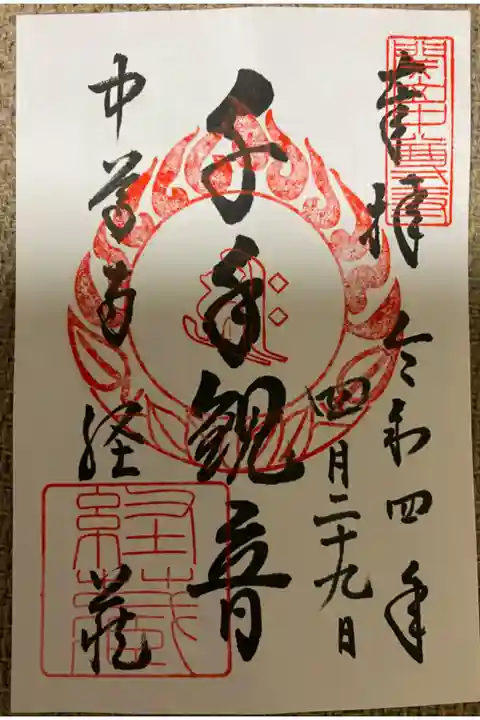 關山中尊寺
奉拝
令和四年
四月二十九日
千手観音
中尊寺 経蔵
経蔵